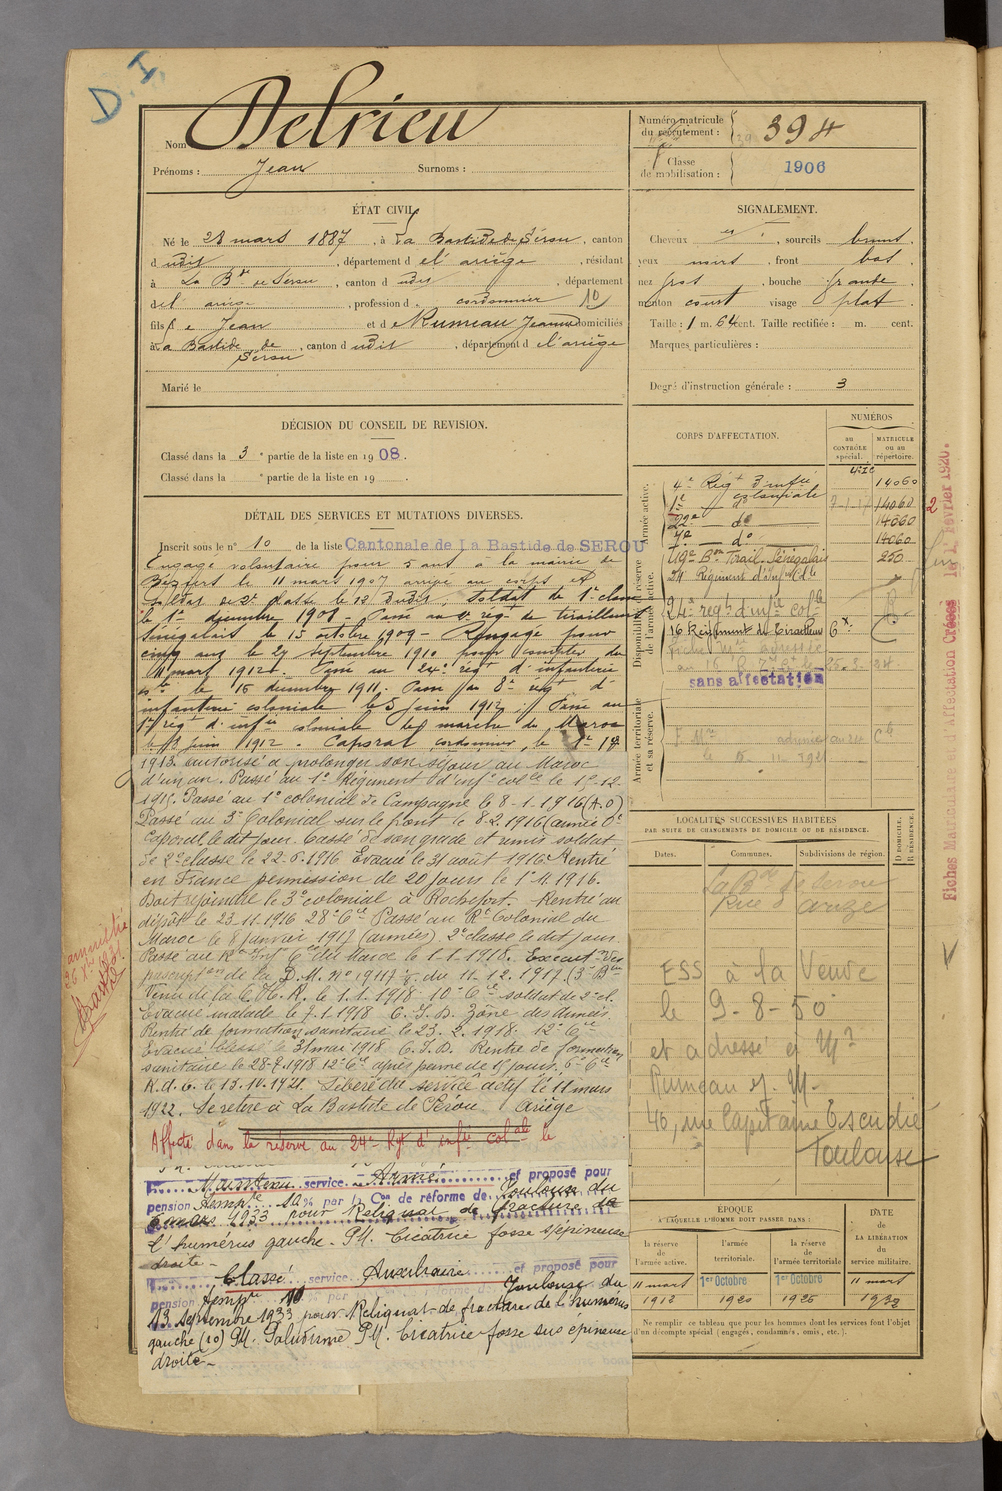 D. I
Nom Delrieu
Prénoms : Jean Surnoms :
Numéro matricule du recrutement : 394
Classe de mobilisation : 1906
ÉTAT CIVIL
Né le 28 mars 1887, à La Bastide de Sérou, canton
d udit, département de l'ariège, résidant
à La Bde de Sérou, canton d udit, département
de l'ariège, profession d cordonnier 10
fils de Jean et de Rumeau Jeanne domiciliés
à La Bastide de Sérou, canton d udit, département de l'ariège
Marié le
SIGNALEMENT.
Cheveux , sourcils bruns,
yeux noirs, front bas,
nez gros, bouche grande,
menton court visage plat.
Taille : 1 m. 64 cent. Taille rectifiée : m. cent.
Marques particulières :
Degré d'instruction générale : 3
DÉCISION DU CONSEIL DE REVISION.
Classé dans la 3e partie de la liste en 1908.
Classé dans la e partie de la liste en 19 .
DÉTAIL DES SERVICES ET MUTATIONS DIVERSES.
Inscrit sous le n° 10 de la liste Cantonale de La Bastide de SEROU
Engagé volontaire pour 5 ans à la mairie de
le 11 mars 1907 arrivé au corps et
soldat de 2e classe le 12 dudit. Soldat de 1e classe
le 1er décembre 1908. Passé au 2e régt de tirailleurs
Sénégalais le 15 octobre 1909. Rengagé pour
cinq ans le 27 septembre 1910 pour compter du
11 mars 1912. Passé au 24e régt d'infanterie
cole le 16 décembre 1911. Passé au 8e régt d'
infanterie coloniale le 5 juin 1912. Passé au
1er régt d'infie coloniale de marche du Maroc
le 13 juin 1912. Caporal cordonnier le 1er
1913. autorisé à prolonger son séjour au Maroc
d'un an. Passé au 1e Régiment d'infie colle le 15-12-
1915. Passé au 1e colonial de Campagne le 8-1-1916 (A.D)
Passé au 3e Colonial sur le front le 8-2-1916 (armée De
Caporal le dit jour. Cassé de son grade et remis soldat
de 2e classe le 22-6-1916 Evacué le 31 août 1916. Rentré
en France permission de 20 jours le 1-11-1916.
Doit rejoindre le 3e colonial à Rochefort. Rentré au
dépôt le 23-11-1916 28e Cie Passé au Rt Colonial du
Maroc le 8 janvier 1917 (armées) 2e classe le dit jour
Passé au Rt Infie Cle du Maroc le 1-1-1918. Exécut des
prescript.on de la D.M. n° 19117 du 11-12-1917. (3e Bon
Venu de la C.H.R. le 1-1-1918 10e Cie soldat de 2e cl.
Evacué malade le 7-1-1918 C.I.D. Zône des armées.
Rentré de formation sanitaire le 23-2-1918. 12e Cie
Evacué blessé le 31 mai 1918 C.I.D. Rentré de formation
sanitaire le 28-7-1918 12e Cie après perme de 15 jours. 6e Cie
R.d.C. le 13-10-1921. Libéré du service actif le 11 mars
1922. Se retire à La Bastide de Sérou Ariège
Affecté dans la réserve au 24e Rgt d'infie colale le
amnistié
Maintenu service Armé et proposé pour
pension Tempre 10% par la Con de réforme de Toulouse du
1933 pour Reliquat de fracture de
l'humérus gauche. PM. Cicatrice fosse s/épineuse
droite.
Classé service Auxiliaire et proposé pour
pension Tempre 10 Toulouse du
13 Septembre 1933 pour Reliquat de fracture de l'humérus
gauche (10) PM. Paludisme PM. Cicatrice fosse sus épineuse
droite.
CORPS D'AFFECTATION.
NUMÉROS
au CONTRÔLE spécial.
MATRICULE ou au répertoire.
Armée active.
4e Régt d'infie coloniale 14060
1e do 14060
22e do 14060
7e do 14060
19e Bon Tirail. Sénégalais 250
24 Régiment d'Infie Cle
Disponibilité et réserve de l'armée active.
24e regt d'infie colle
16 Régiment de Tirailleurs
sans affectation
Armée territoriale et sa réserve.
LOCALITÉS SUCCESSIVES HABITÉES
PAR SUITE DE CHANGEMENTS DE DOMICILE OU DE RÉSIDENCE.
Dates.
Communes.
Subdivisions de région.
D DOMICILE.
R RÉSIDENCE.
La Bde de Sérou
Rue d'arize
ESS à la Veuve
le 9-8-50
et adressé à Me
Rumeau
46, rue Capitaine Escudié
Toulouse
ÉPOQUE
À LAQUELLE L'HOMME DOIT PASSER DANS :
la réserve de l'armée active.
l'armée territoriale.
la réserve de l'armée territoriale
DATE DE LA LIBÉRATION du service militaire.
11 mars 1912
1er Octobre 1920
1er Octobre 1926
11 mars 1932
Ne remplir ce tableau que pour les hommes dont les services font l'objet
d'un décompte spécial (engagés, condamnés, omis, etc.).
Fiches Matriculaire et d'Affectation Créées le 1er Février 1920.